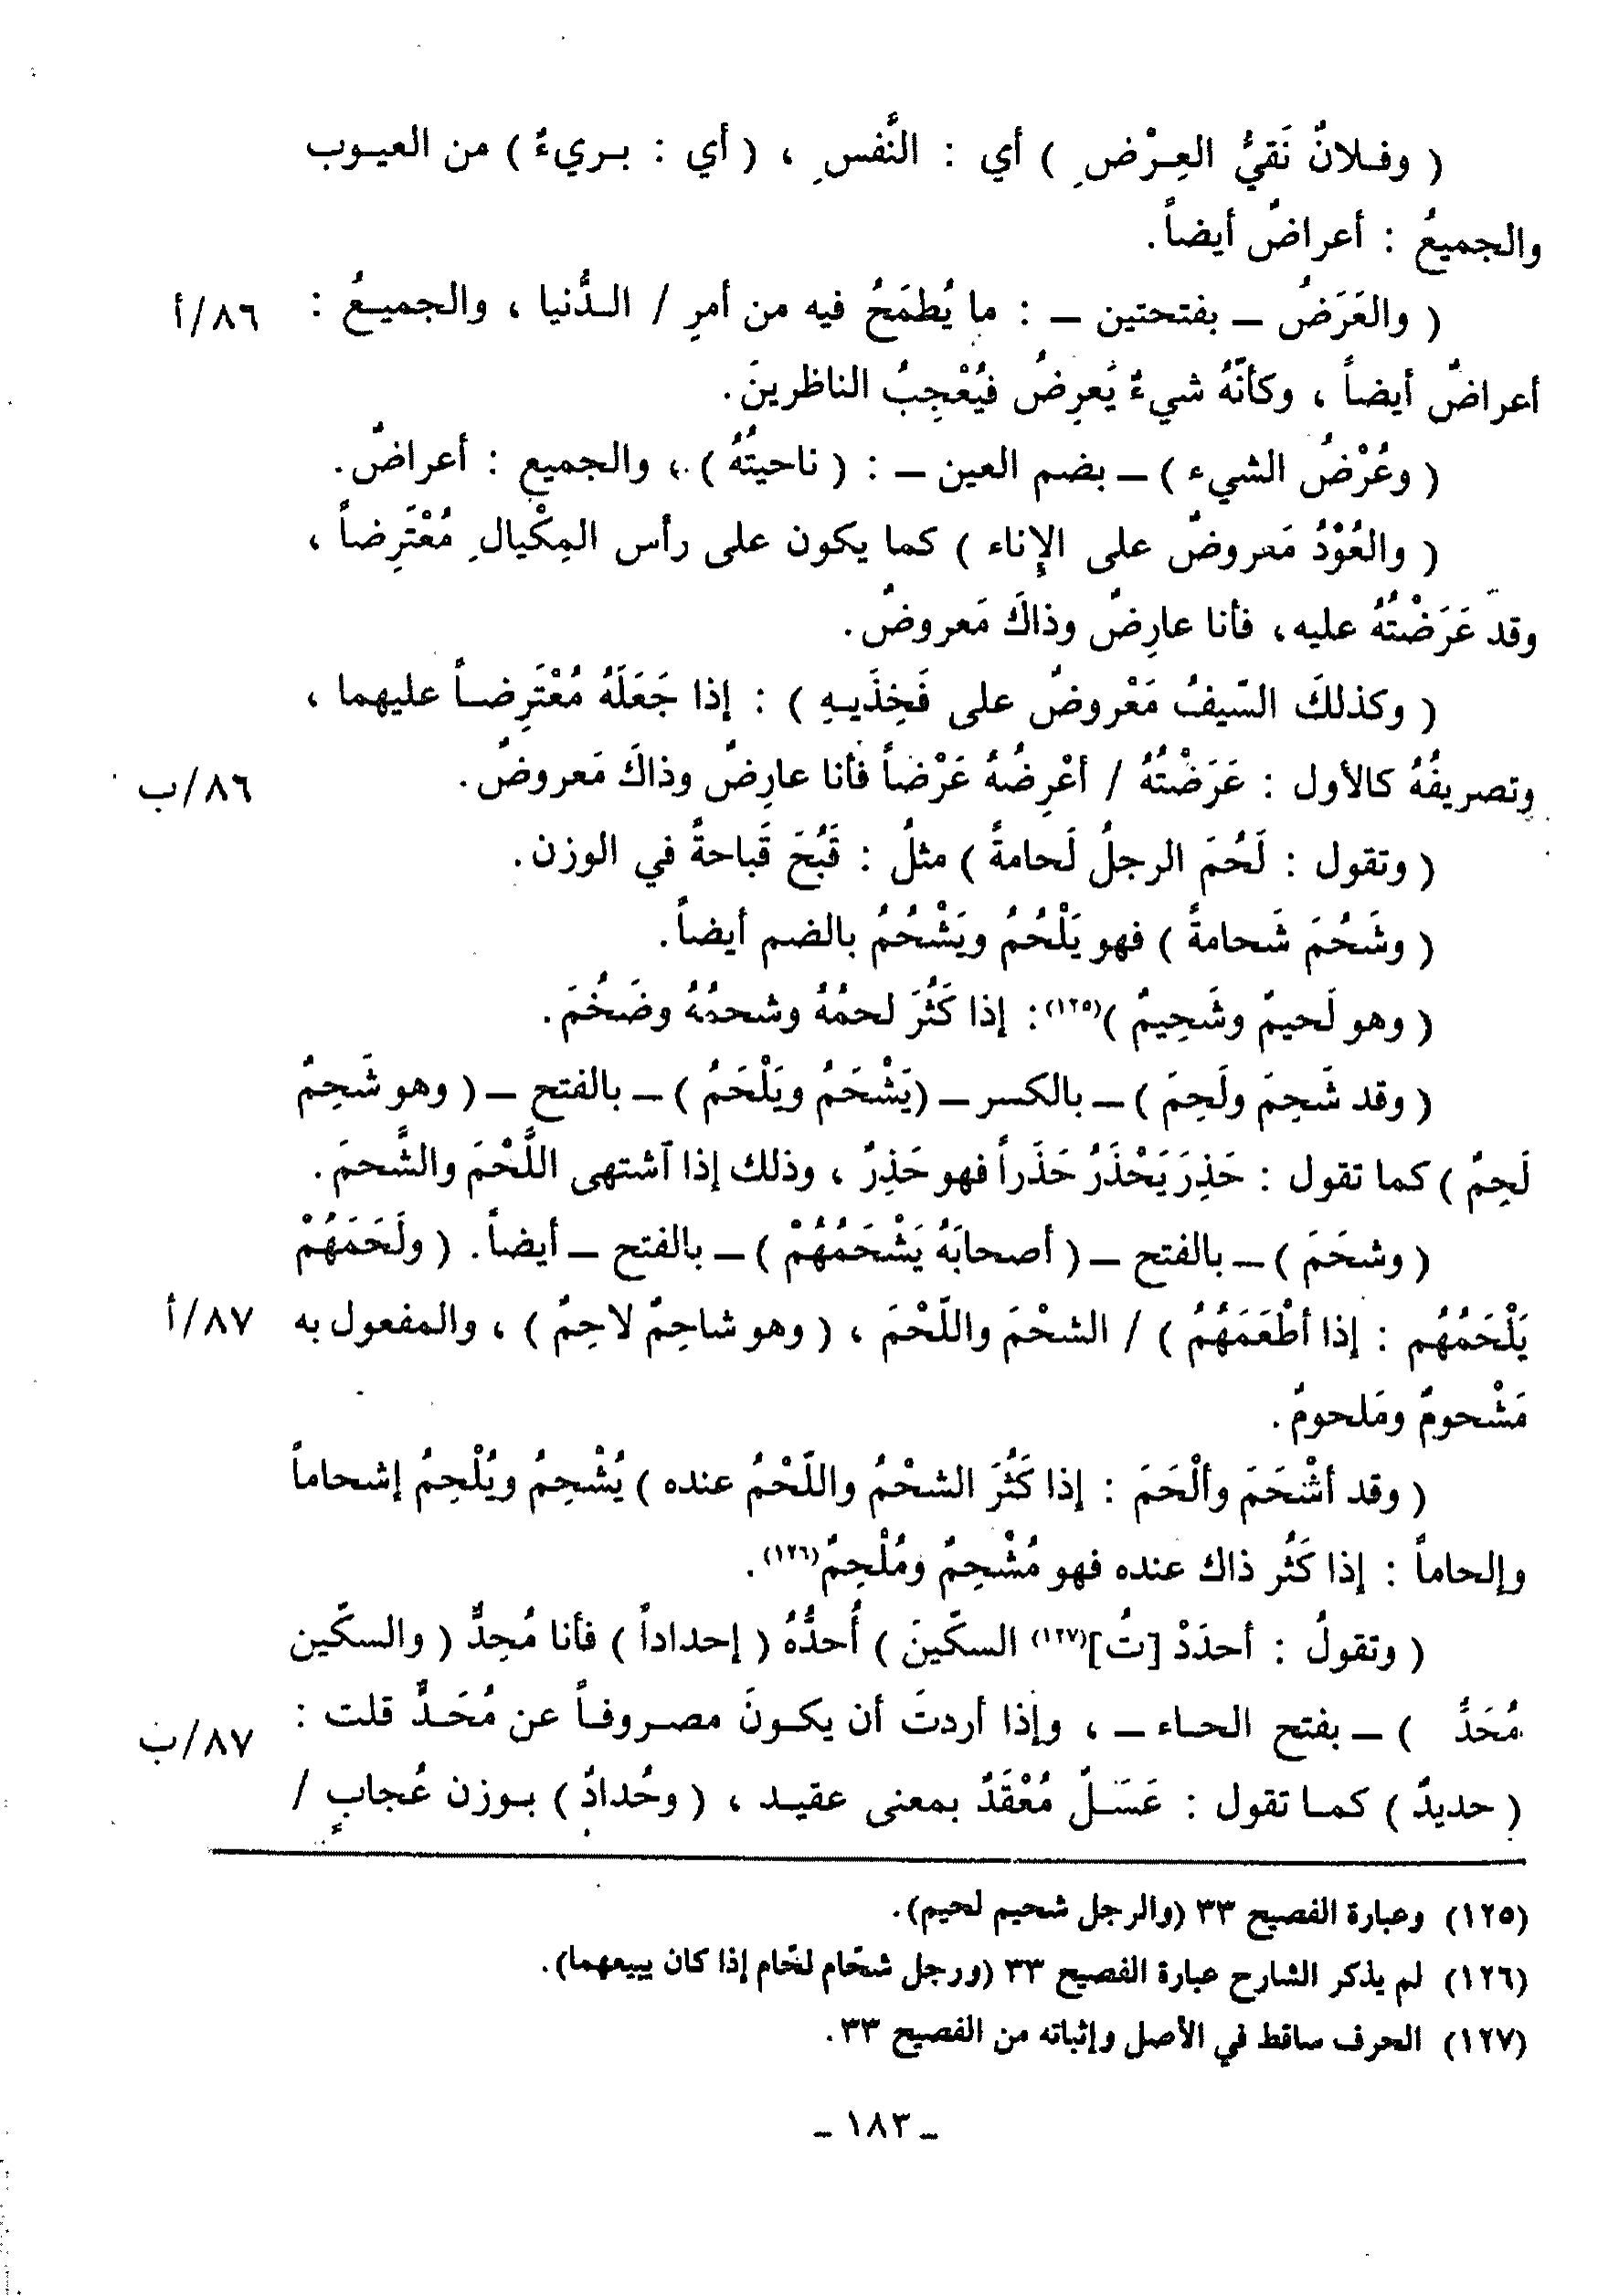 ( وفلانٌ نَقيُّ العِرْضِ ) أي : النَّفسِ ، ( أي : بريءٌ ) من العيوب
والجميعُ : أعراضٌ أيضاً.
( والعَرَضُ – بفتحتين – : ما يُطمَحُ فيه من أمرِ / الدُّنيا ، والجميعُ : ٨٦/أ
أعراضٌ أيضاً ، وكأنّهُ شيءٌ يُعرِضُ فيُعْجِبُ الناظرينَ.
( وعُرْضُ الشيء ) – بضم العين – : ( ناحيتُهُ ) ، والجميع : أعراضٌ.
( والعُوْدُ مَعروضٌ على الإِناء ) كما يكون على رأس المِكْيالِ مُعْتَرِضاً ،
وقد عَرَضْتُهُ عليه، فأنا عارِضٌ وذاكَ مَعروضٌ.
( وكذلكَ السّيفُ مَعْروضٌ على فَخِذَيهِ ) : إذا جَعَلَهُ مُعْتَرِضاً عليهما ،
وتصريفُهُ كالأول : عَرَضْتُهُ / أعْرِضُهُ عَرْضاً فأنا عارِضٌ وذاكَ مَعروضٌ. ٨٦/ب
( وتقول : لَحُمَ الرجلُ لَحامةً ) مثلُ : قَبُحَ قَباحةً في الوزن.
( وشَحُمَ شَحامةً ) فهو يَلْحُمُ ويَشْحُمُ بالضم أيضاً.
( وهو لَحيمٌ وشَحِيمٌ )(١٢٥): إذا كَثُرَ لحمُهُ وشحمُهُ وضَخُمَ.
( وقد شَحِمَ ولَحِمَ ) – بالكسر – (يَشْحَمُ ويَلْحَمُ ) – بالفتح – ( وهو شَحِمٌ
لَحِمٌ ) كما تقول : حَذِرَ يَحْذَرُ حَذَراً فهو حَذِرٌ ، وذلك إذا آشتهى اللَّحْمَ والشَّحمَ.
( وشحَمَ ) – بالفتح – ( أصحابَهُ يَشْحَمُهُمْ ) – بالفتح – أيضاً. ( ولَحَمَهُمْ
يَلْحَمُهُم : إذا أطْعَمَهُمُ ) / الشحْمَ واللّحْمَ ، ( وهو شاحِمٌ لاحِمٌ ) ، والمفعول به ٨٧/أ
مَشْحومٌ ومَلحومٌ.
( وقد أشْحَمَ وألْحَمَ : إذا كَثُرَ الشحْمُ واللّحْمُ عنده ) يُشْحِمُ ويُلْحِمُ إشحاماً
وإلحاماً : إذا كَثُر ذاك عنده فهو مُشْحِمٌ ومُلْحِمٌ(١٢٦).
( وتقولُ : أحدَدْ [تُ](١٢٧) السكّينَ ) أُحدُّهُ ( إحداداً ) فأنا مُحِدٌّ ( والسكّين
مُحَدٌّ ) – بفتح الحاء – ، وإذا أردتَ أن يكونَ مصروفاً عن مُحَدٍّ قلت : ٨٧/ب
( حديدٌ ) كما تقول : عَسَلٌ مُعْقَدٌ بمعنى عقيد ، ( وحُدادٌ ) بوزن عُجابٍ /
(١٢٥) وعبارة الفصيح ٣٣ (والرجل شحيم لحيم).
(١٢٦) لم يذكر الشارح عبارة الفصيح ٣٣ (ورجل شحّام لحّام إذا كان يبيعهما).
(١٢٧) الحرف ساقط في الأصل وإثباته من الفصيح ٣٣.
ـ ١٨٣ ـ